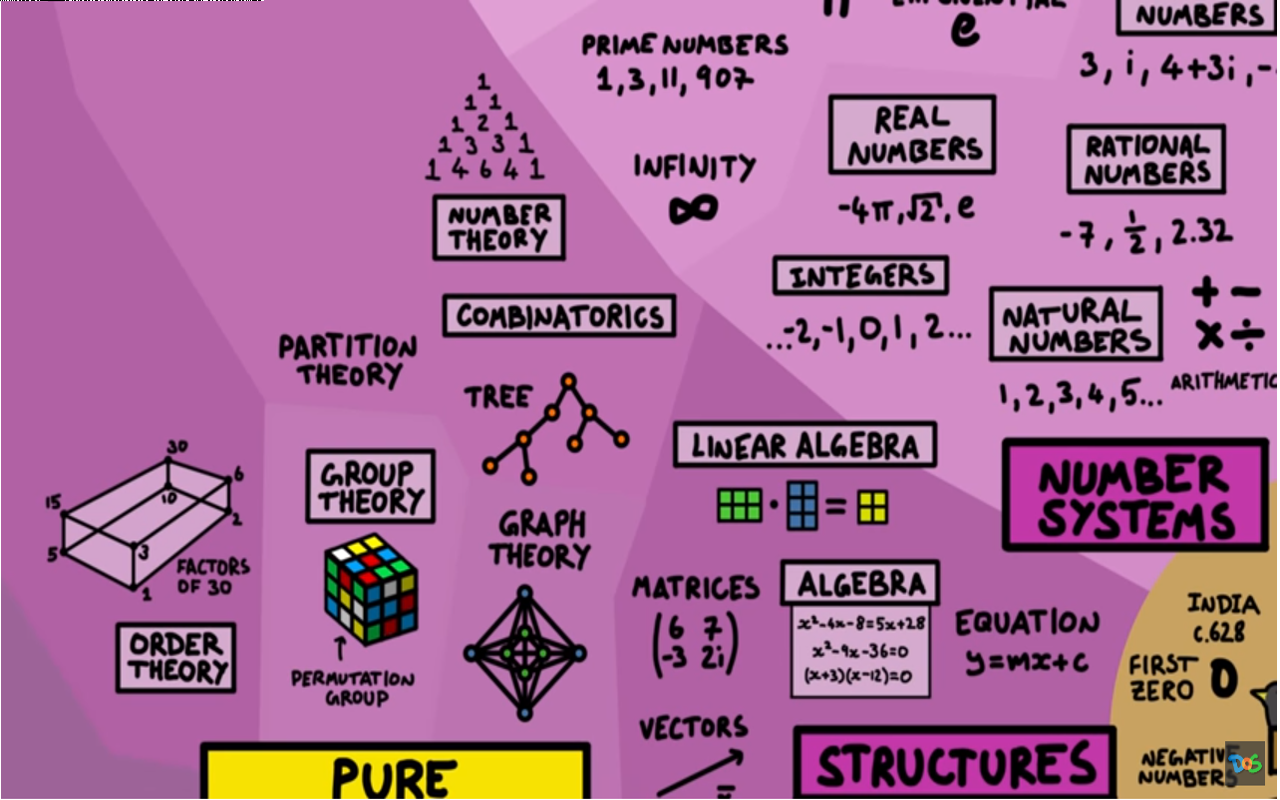 e
NUMBERS
3, i, 4+3i, -
PRIME NUMBERS
1, 3, 11, 907
INFINITY
∞
REAL
NUMBERS
-4π, √2, e
RATIONAL
NUMBERS
-7, 1/2, 2.32
INTEGERS
...-2, -1, 0, 1, 2...
NATURAL
NUMBERS
1, 2, 3, 4, 5...
+ −
× ÷
ARITHMETIC
NUMBER
SYSTEMS
1
1 1
1 2 1
1 3 3 1
1 4 6 4 1
NUMBER
THEORY
COMBINATORICS
PARTITION
THEORY
TREE
GROUP
THEORY
PERMUTATION
GROUP
GRAPH
THEORY
30
6
15
10
2
5
3
1
FACTORS
OF 30
ORDER
THEORY
PURE
LINEAR ALGEBRA
· =
MATRICES
(6 7
-3 2i)
VECTORS
ALGEBRA
x²-4x-8=5x+28
x²-9x-36=0
(x+3)(x-12)=0
EQUATION
y=mx+c
STRUCTURES
INDIA
c.628
FIRST
ZERO 0
NEGATIVE
NUMBERS
DOS